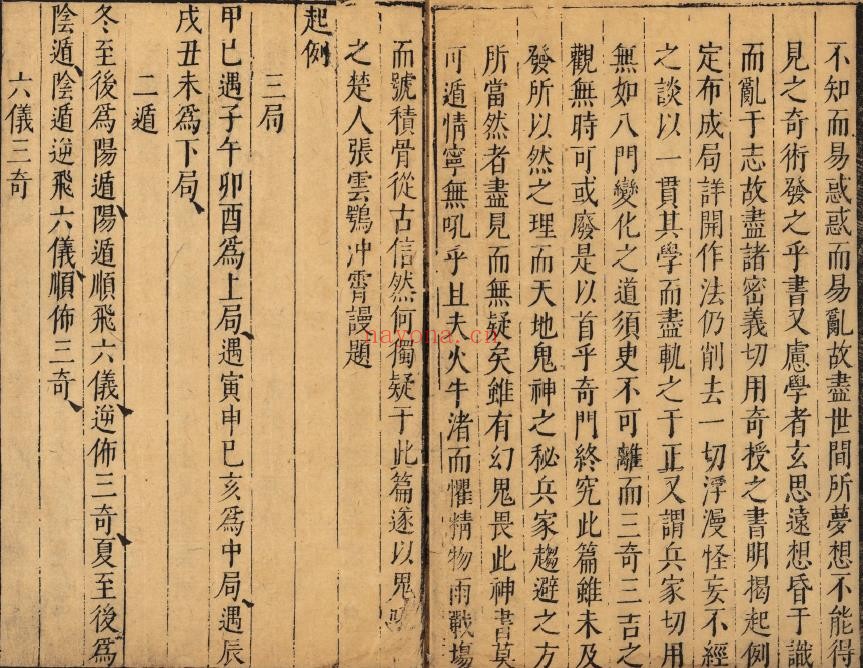 不知而易惑惑而易亂故盡世間所夢想不能得
見之奇術發之乎書又慮學者玄思遠想昏于識
而亂于志故盡諸密義切用奇授之書明揭起例
定布成局詳開作法仍削去一切浮漫怪妄不經
之談以一貫其學而盡軌之于正又謂兵家切用
無如八門變化之道須臾不可離而三奇三吉之
觀無時可或廢是以首乎奇門終究此篇雖未及
發所以然之理而天地鬼神之秘兵家趨避之方
所當然者盡見而無疑矣雖有幻鬼畏此神書莫
可遁情寧無吼乎且夫火牛渚而懼精物雨戰場
而號積骨從古信然何獨疑于此篇遂以鬼
之楚人張雲鶚冲霄謾題
起例
三局
甲己遇子午卯酉爲上局、遇寅申巳亥爲中局、遇辰
戌丑未爲下局、
二遁
冬至後爲陽遁、陽遁順飛六儀、逆佈三奇、夏至後爲
陰遁、陰遁逆飛六儀、順佈三奇、
六儀三奇
nayona.cn